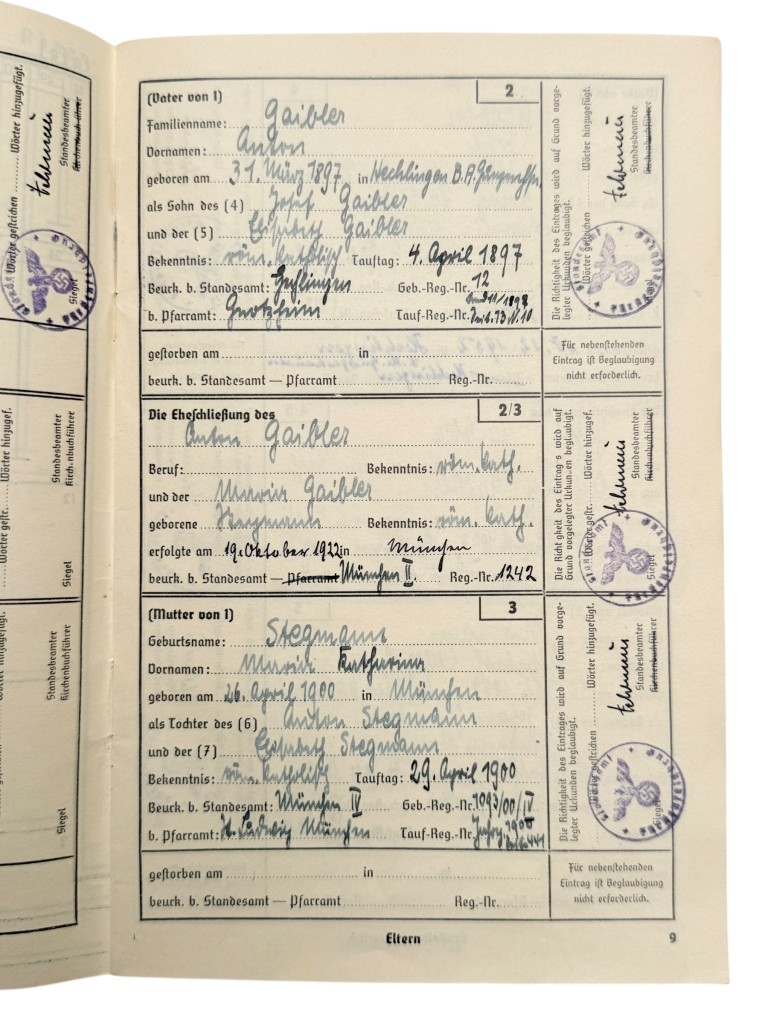 (Vater von 1)
2
Familienname: Gaibler
Vornamen: Anton
geboren am 31. März 1897 in Hechlingen B.A.
als Sohn des (4) Josef Gaibler
und der (5) Elisabeth Gaibler
Bekenntnis: röm. katholisch Tauftag: 4. April 1897
Beurk. b. Standesamt: Geb.-Reg.-Nr. 12
b. Pfarramt: Tauf-Reg.-Nr.
gestorben am in
beurk. b. Standesamt — Pfarramt Reg.-Nr.
Die Eheschließung des
2/3
Anton Gaibler
Beruf: Bekenntnis: röm. kath.
und der Maria Gaibler
geborene Stegmann Bekenntnis: röm. kath.
erfolgte am 19. Oktober 1922 in München
beurk. b. Standesamt — Pfarramt München II. Reg.-Nr. 1242
(Mutter von 1)
3
Geburtsname: Stegmann
Vornamen: Maria Katharina
geboren am 26. April 1900 in München
als Tochter des (6) Anton Stegmann
und der (7) Elisabeth Stegmann
Bekenntnis: röm. katholisch Tauftag: 29. April 1900
Beurk. b. Standesamt: München IV Geb.-Reg.-Nr. 1093/00/IV
b. Pfarramt: St. Ludwig München Tauf-Reg.-Nr. 1900
gestorben am in
beurk. b. Standesamt — Pfarramt Reg.-Nr.
Die Richtigkeit des Eintrages wird auf Grund vorge-
legter Urkunden beglaubigt.
Wörter gestrichen Wörter hinzugefügt.
Standesbeamter
Kirchenbuchführer
Für nebenstehenden
Eintrag ist Beglaubigung
nicht erforderlich.
Die Richtigkeit des Eintrags wird auf
Grund vorgelegter Urkunden beglaubigt.
Wörter gestr. Wörter hinzugef.
Standesbeamter
Kirchenbuchführer
Siegel
Die Richtigkeit des Eintrages wird auf Grund vorge-
legter Urkunden beglaubigt.
Wörter gestrichen Wörter hinzugefügt.
Standesbeamter
Kirchenbuchführer
Siegel
Für nebenstehenden
Eintrag ist Beglaubigung
nicht erforderlich.
Eltern
9
Wörter gestrichen Wörter hinzugefügt.
Standesbeamter
Kirchenbuchführer
Siegel
Wörter gestr. Wörter hinzugef.
Standesbeamter
Kirchenbuchführer
Siegel
Wörter gestrichen Wörter hinzugefügt.
Standesbeamter
Kirchenbuchführer
Siegel